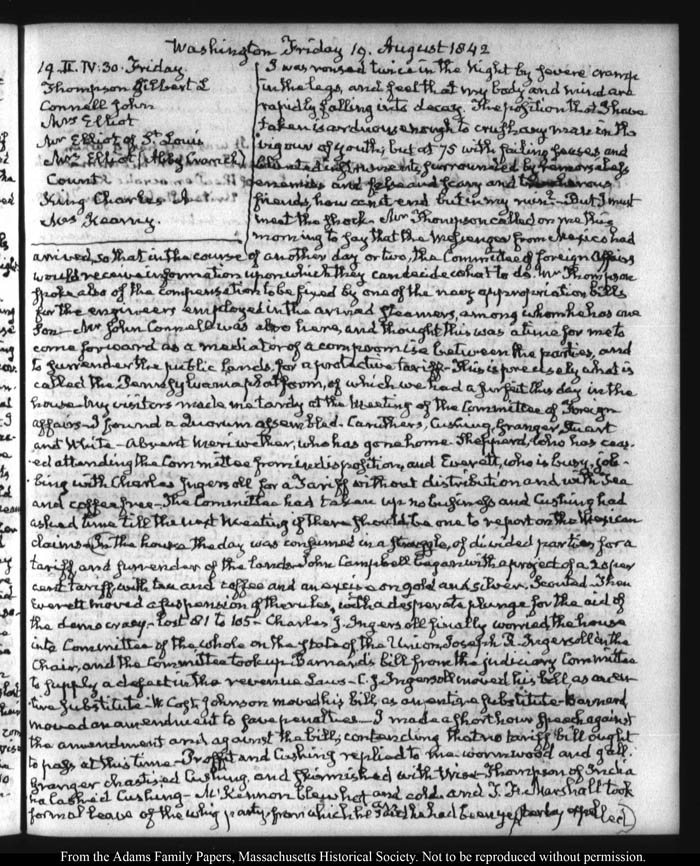 Washington Friday 19. August 1842
19. II. IV:30. Friday.
Thompson Gilbert L
Connell John
Mrs Elliot
Mr Elliot of St Louis
Mrs Elliot (Abby Cranch)
Count
King Charles
Mrs Kearny.
I was roused twice in the Night by severe cramp
in the legs, and feel that my body and mind are
rapidly falling into decay. The position that I have
taken is arduous enough to crush any man in the
vigour of youth; but at 75 with failing senses and
surrounded by remorseless
enemies and false and scary and treacherous
friends, how can it end but in my ruin? But I must
meet the shock. Mr Thompson called on me this
morning to say that the Messenger from Mexico had
arrived, so that in the course of another day or two, the Committee of foreign Affairs
would receive information upon which they can decide what to do. Mr Thompson
spoke also of the compensation to be fixed by one of the navy appropriation bills
for the engineers employed in the armed Steamers, among whom he has one
Son. Mr John Connell was also here, and thought this was a time for me to
come forward as a mediator of a compromise between the parties, and
to surrender the public lands for a protective tariff. This is precisely what is
called the Pennsylvania platform, of which we had a surfeit this day in the
house. My visitors made me tardy at the Meeting of the Committee of Foreign
affairs. I found a Quorum assembled. Caruthers, Cushing, Granger, Stuart
and White. Absent Meriwether, who has gone home. Shepperd, who has ceas-
ed attending the Committee from indisposition, and Everett, who is busy, job-
bing with Charles Ingersoll for a Tariff without distribution and with Tea
and coffee free. The Committee had taken up no business and Cushing had
asked time till the next Meeting if there should be one to report on the Mexican
claims. In the house the day was consumed in a struggle, of divided parties for a
tariff and surrender of the lands. John Campbell began with a project of a 20 per
cent tariff with tea and coffee and an excise on gold and silver. Scouted. Then
Everett moved a suspension of the rules, with a desperate plunge for the aid of
the democracy. lost 81 to 105. Charles J. Ingersoll finally worried the house
into Committee of the whole on the state of the Union, Joseph R. Ingersoll in the
Chair, and the Committee took up Barnard's bill from the judiciary Committee
to supply a defect in the revenue Laws. C. J. Ingersoll moved his bill, as an en-
tire substitute. W. Cost Johnson moved his bill as an entire substitute. Barnard
moved an amendment to save penalties. I made a short hour speech against
the amendment and against the bill; contending that no tariff bill ought
to pass at this time. Proffit and Cushing replied to me wormwood and gall.
Granger chastised Cushing, and skirmished with Wise. Thompson of India-
na lashed Cushing. McKennon blew hot and cold. and T. F. Marshall took
formal leave of the whig party, from which he said he had been yesterday expelled
From the Adams Family Papers, Massachusetts Historical Society. Not to be reproduced without permission.